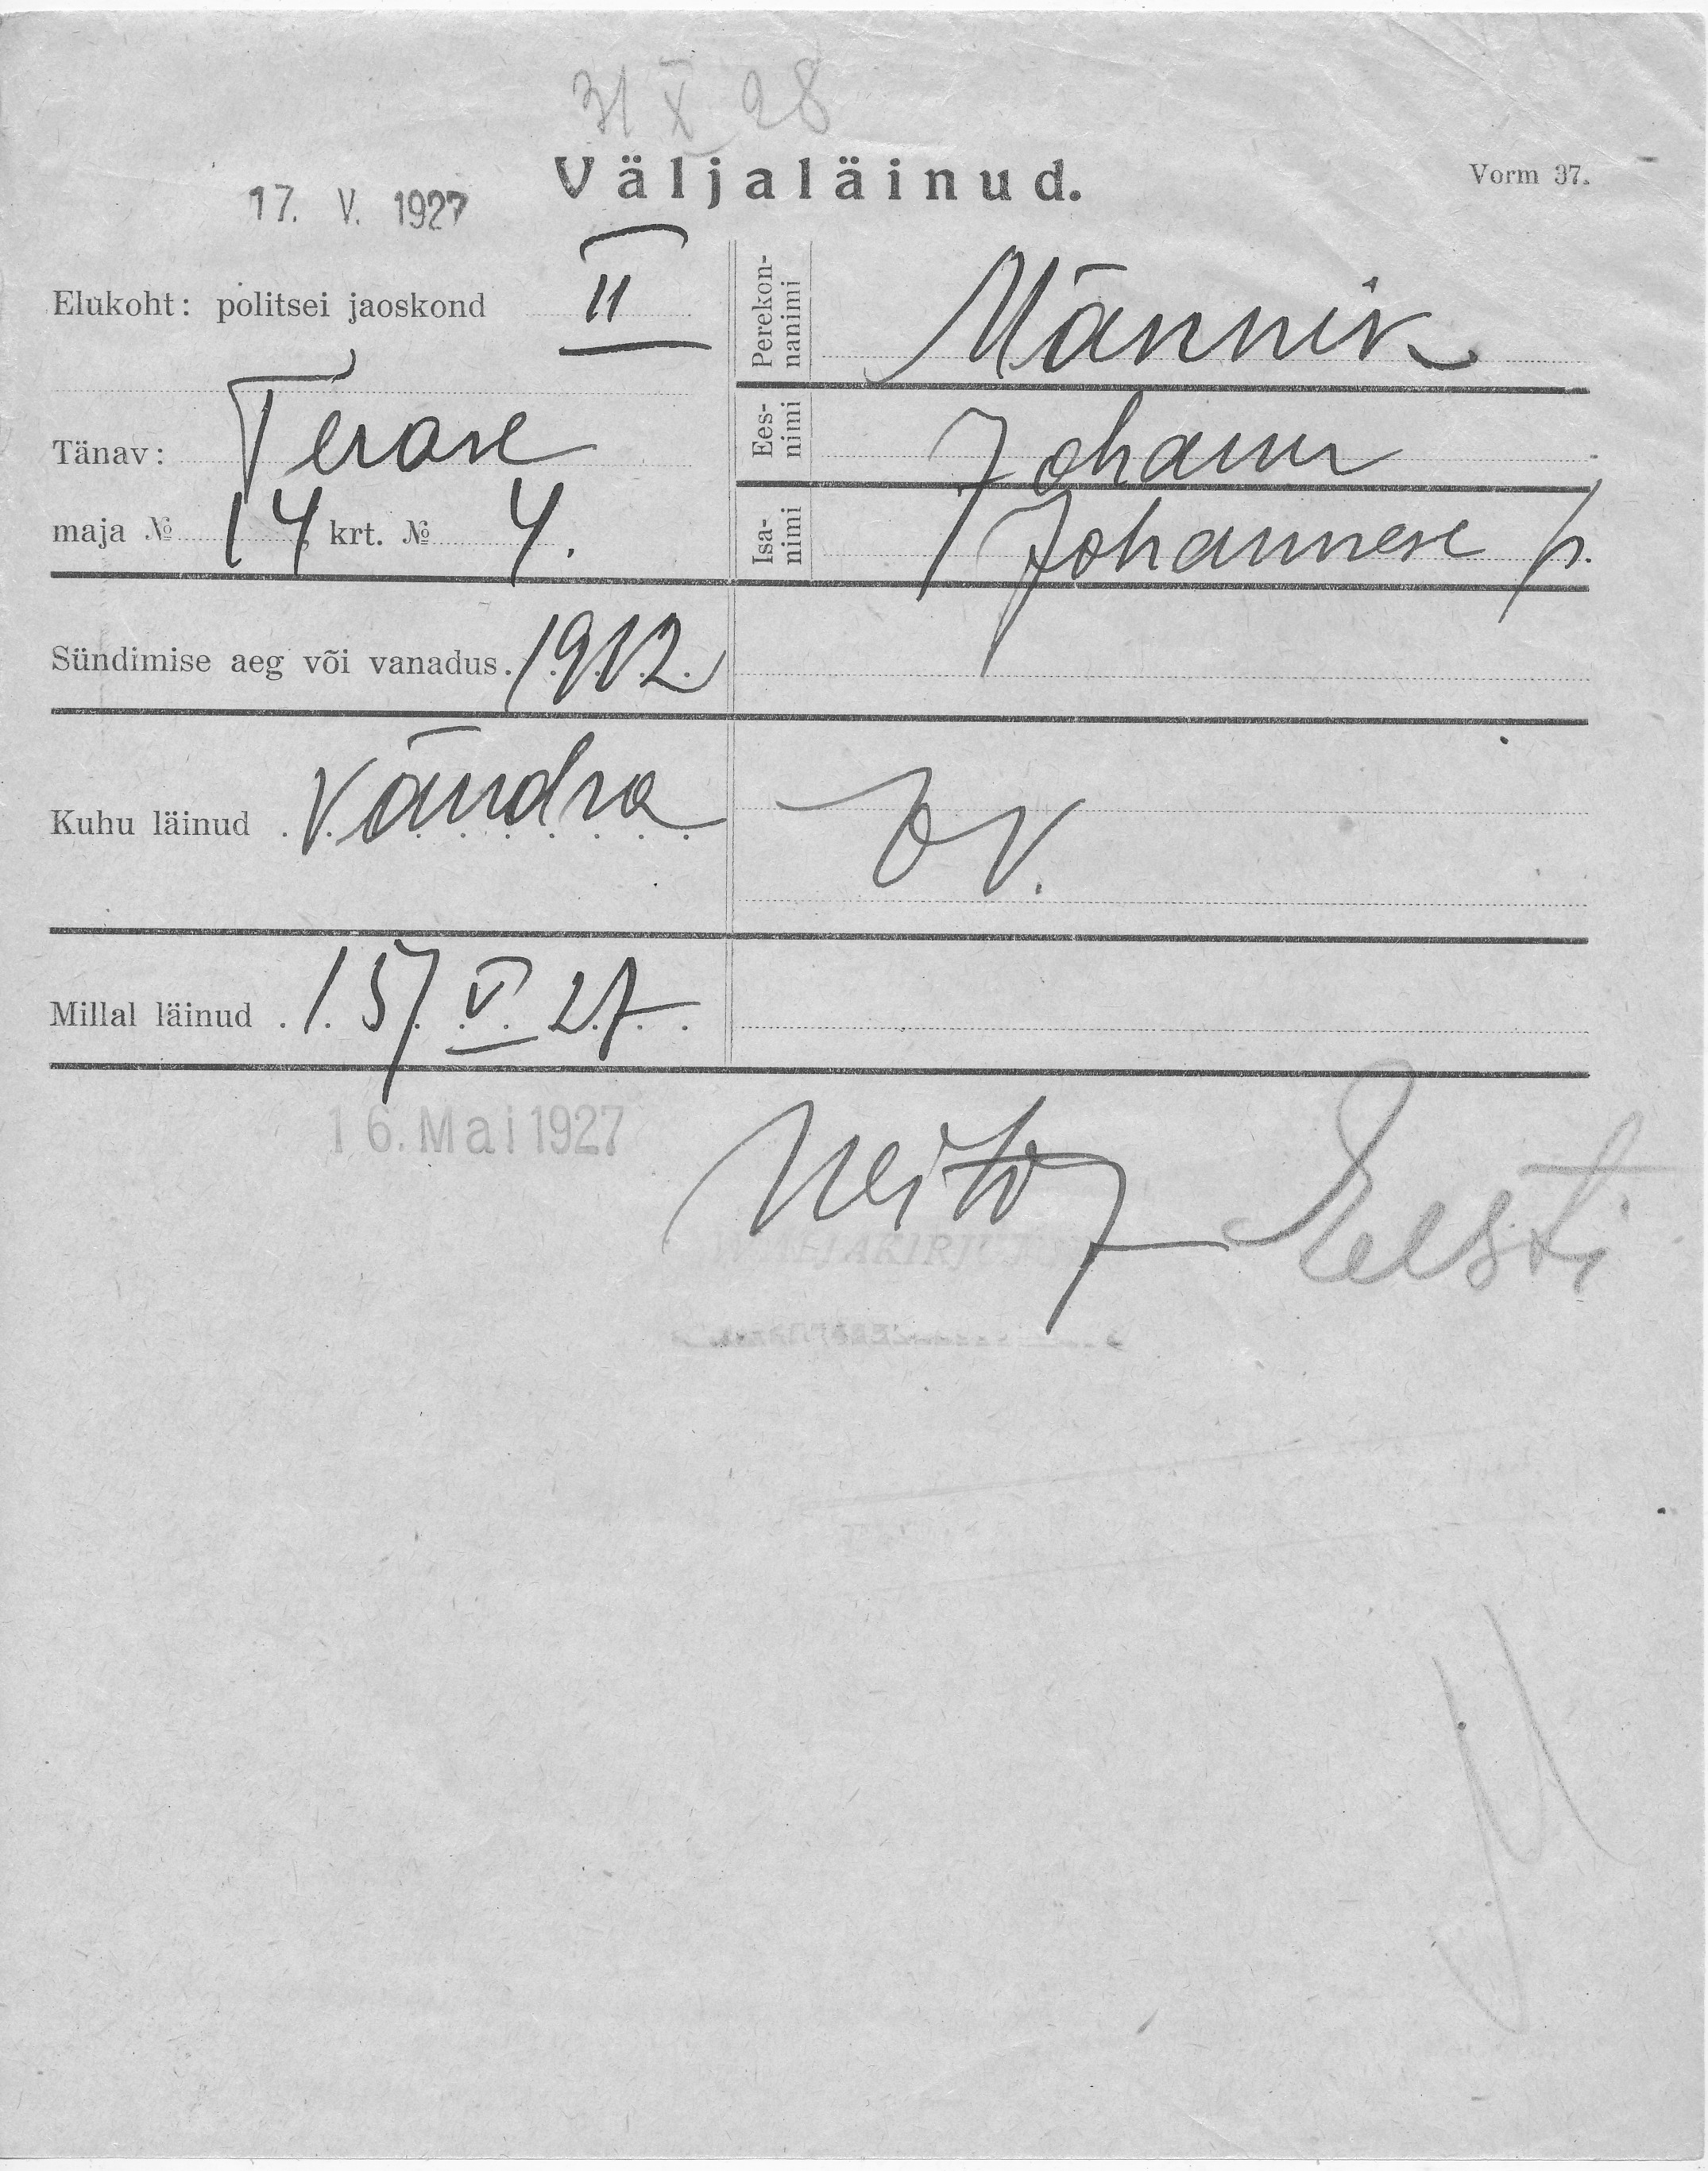 31 X 28
Väljaläinud.
Vorm 37.
17. V. 1927
Elukoht: politsei jaoskond II
Perekon-
nanimi
Männik
Tänav: Terase
Ees-
nimi
Johann
maja № 14 krt. № 4.
Isa-
nimi
Johannese p.
Sündimise aeg või vanadus 1912
Kuhu läinud Vändra
Millal läinud 15/V 27.
16. Mai 1927
Eesti